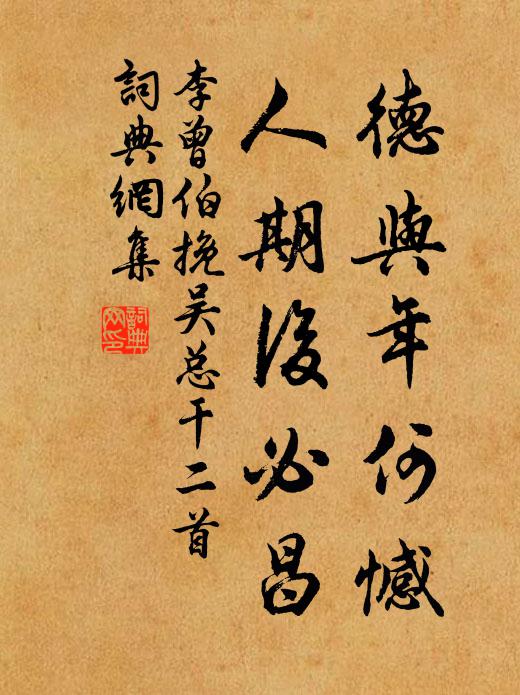 德與年何憾
人期後必昌
李曾伯挽吴总干二首
詞典網集
詞典網印